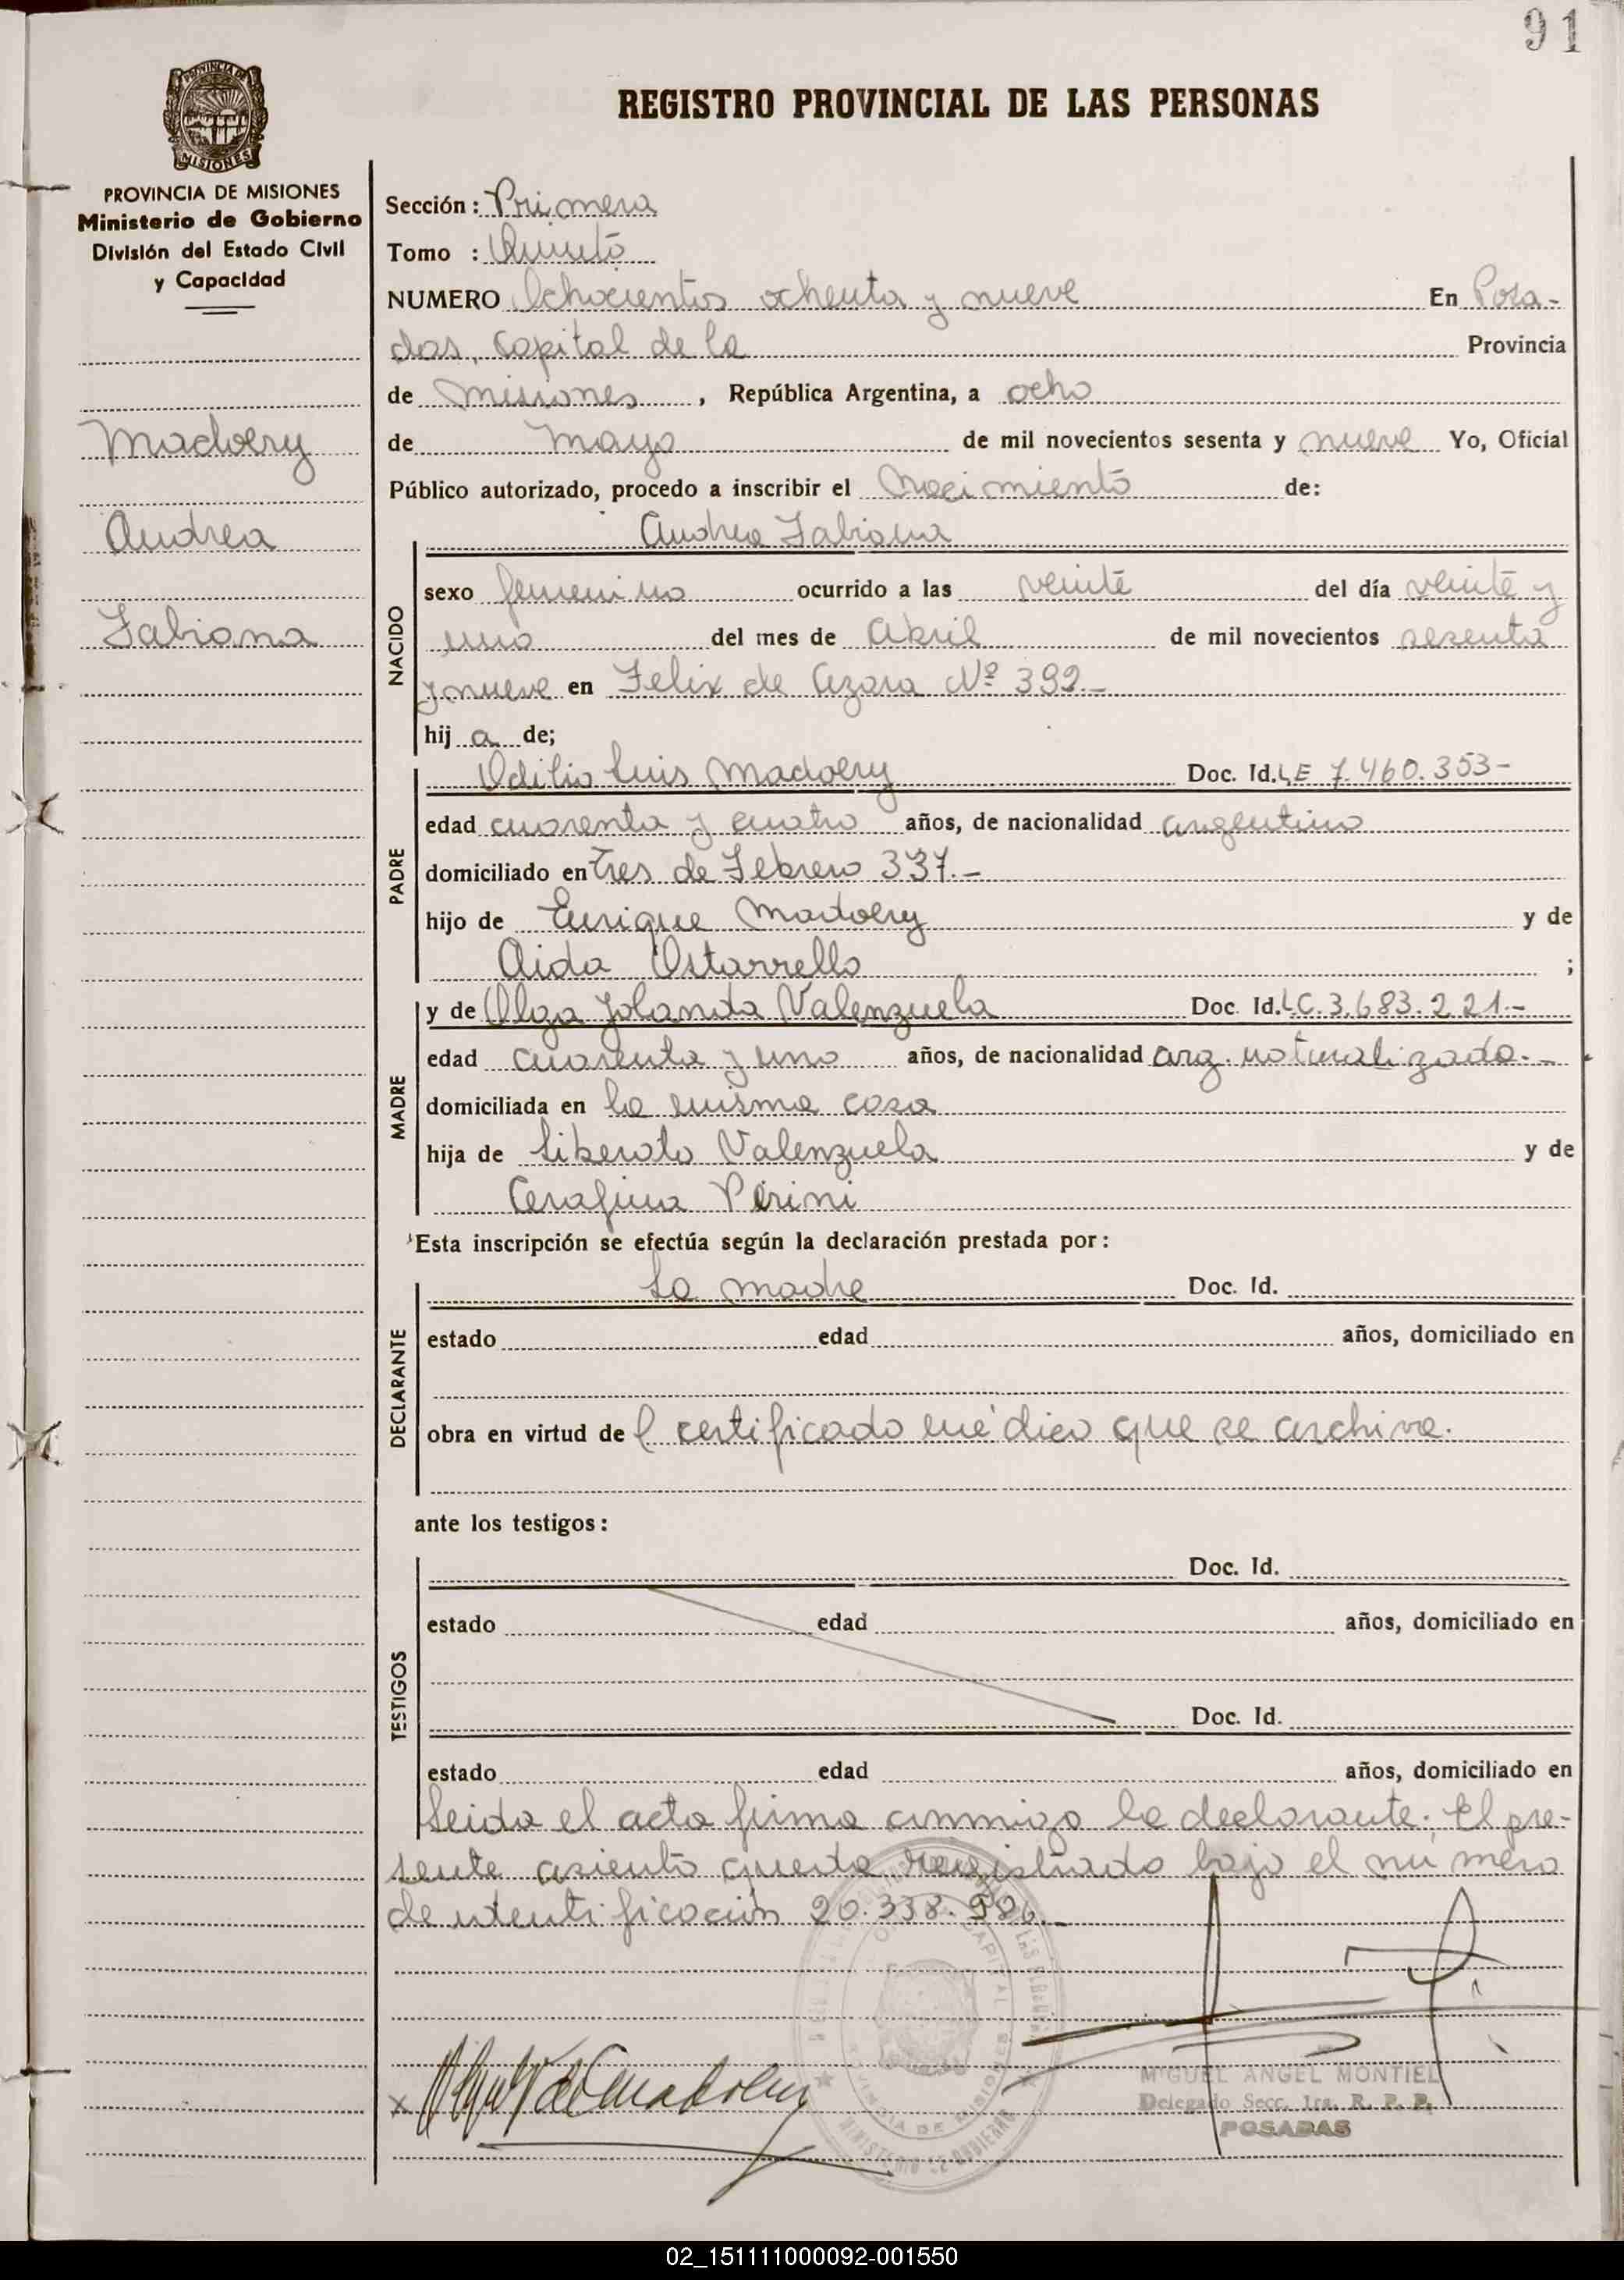 91
REGISTRO PROVINCIAL DE LAS PERSONAS
PROVINCIA DE MISIONES
Ministerio de Gobierno
División del Estado Civil
y Capacidad
Madoery
Andrea
Fabiana
Sección: Primera
Tomo : Quinto
NUMERO Ochocientos ochenta y nueve En Posa-
das, Capital de la Provincia
de Misiones, República Argentina, a ocho
de mayo de mil novecientos sesenta y nueve Yo, Oficial
Público autorizado, procedo a inscribir el Nacimiento de:
NACIDO
Andrea Fabiana
sexo femenino ocurrido a las veinte del día veinte y
uno del mes de Abril de mil novecientos sesenta
y nueve en Felix de Azara Nº 392.-
hij a de;
PADRE
Odilio Luis Madoery Doc. Id. LE 7.460.353-
edad cuarenta y cuatro años, de nacionalidad argentino
domiciliado en Tres de Febrero 337.-
hijo de Enrique Madoery y de
Aida Ostarrello ;
MADRE
y de Olga Yolanda Valenzuela Doc. Id. LC.3.683.221.-
edad cuarenta y uno años, de nacionalidad arg. naturalizada.-
domiciliada en la misma casa
hija de Liberato Valenzuela y de
Cerafina Perini
Esta inscripción se efectúa según la declaración prestada por:
DECLARANTE
La madre Doc. Id.
estado edad años, domiciliado en
obra en virtud de l certificado médico que se archiva.
ante los testigos:
TESTIGOS
Doc. Id.
estado edad años, domiciliado en
Doc. Id.
estado edad años, domiciliado en
Leida el acta firma conmigo la declarante. El pre-
sente asiento queda registrado bajo el número
de identificación 20.338.
MIGUEL ANGEL MONTIEL
Delegado Secc. 1ra. R. P. P.
POSADAS
PROVINCIA DE MISIONES
MINISTERIO DE GOBIERNO
02_151111000092-001550